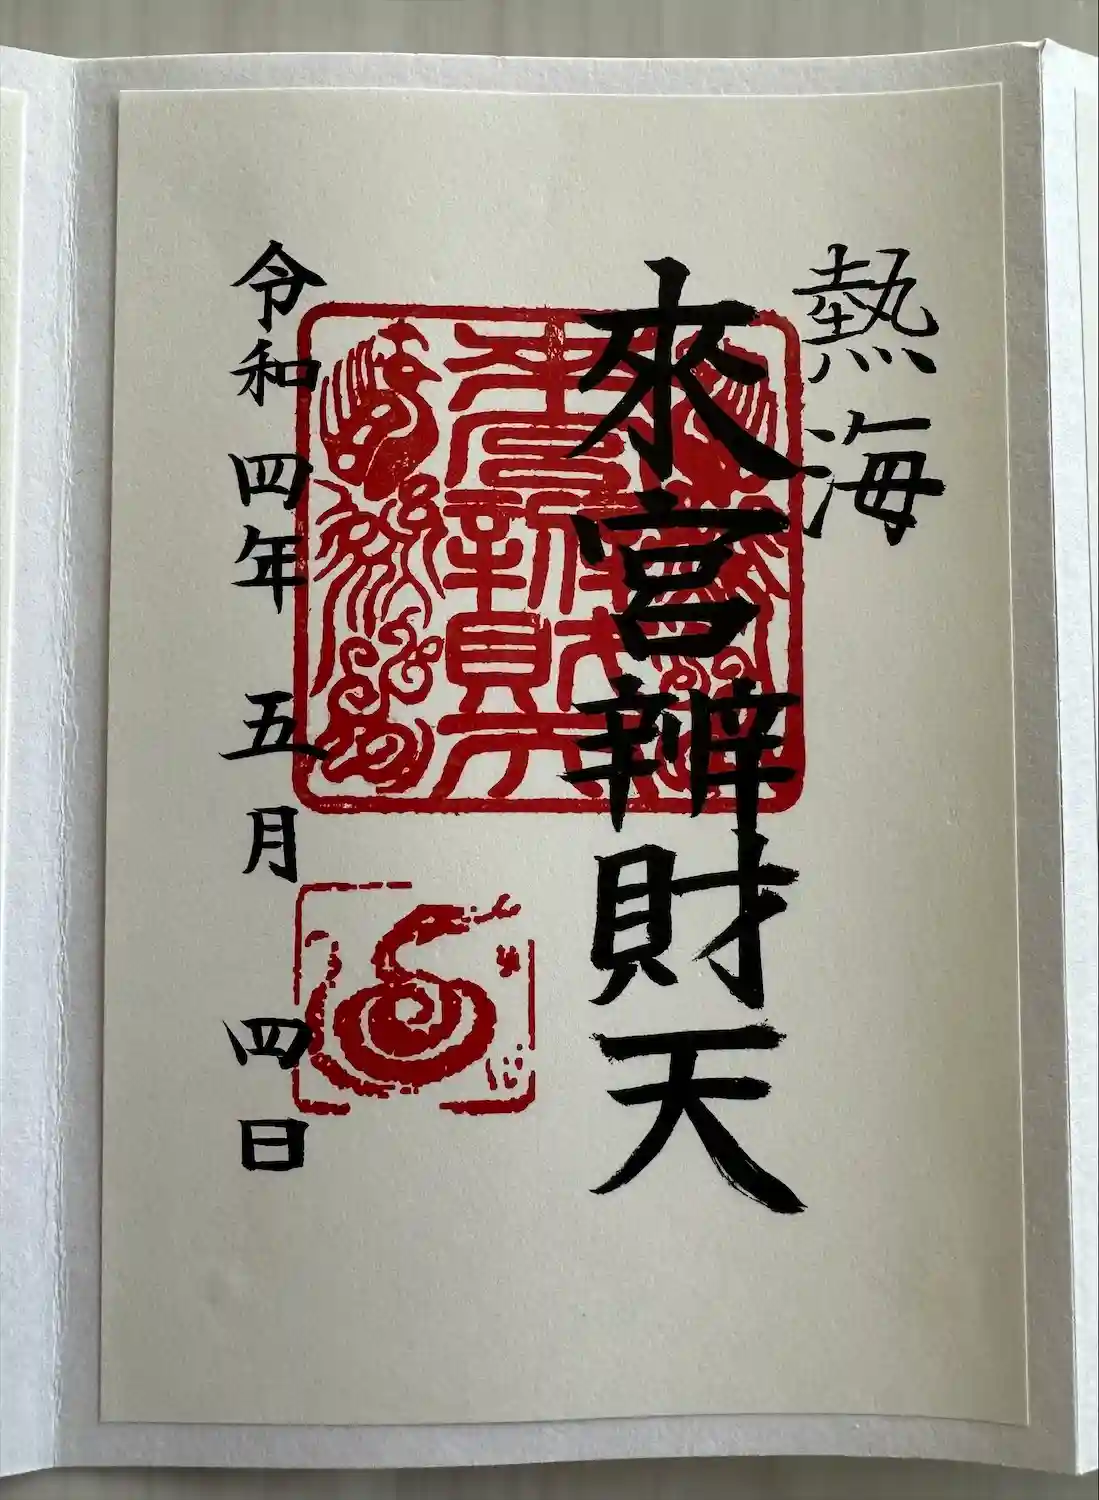 熱海
來宮辨財天
令和四年五月四日